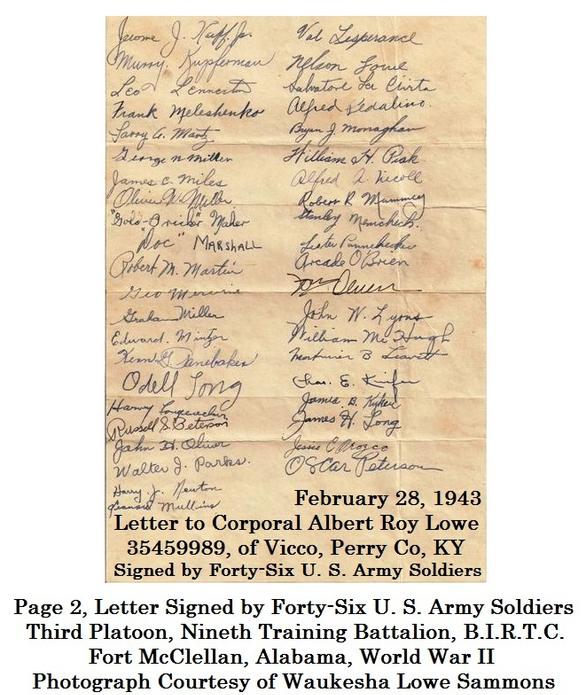 Jerome J. Huff, Jr.
Murry. Kupferman
Leo Lennerton
Frank Meleshenko
Larry A. Martz
George N Miller
James C. Miles
Oliver W. Miller
"Gold-Bricker" Maher
"Doc" MARSHALL
Robert M. Martin
Geo Mercurie
Graham Miller
Edward. Mintzer
Odell Long
Harry Longenecker
Russell S. Peterson
John H. Oliver
Walter J. Parks.
Harry J. Newton
Leonard Mullins
Val Lesperance
Nelson Lowe
Salvatore
Alfred Pedalino.
Bryan J Monaghan
William H. Pisk
Alfred A. Nicoll
Robert R Mummey
Stanley Menscheck.
Lester Pannebecker
Arcade O'Brien
John W. Lyons
William McHugh
B Leavitt
Chas. E. Kiefer
James B. Kyker
James H. Long
Jessie C Orozco
OSCar Peterson
February 28, 1943
Letter to Corporal Albert Roy Lowe
35459989, of Vicco, Perry Co, KY
Signed by Forty-Six U. S. Army Soldiers
Page 2, Letter Signed by Forty-Six U. S. Army Soldiers
Third Platoon, Nineth Training Battalion, B.I.R.T.C.
Fort McClellan, Alabama, World War II
Photograph Courtesy of Waukesha Lowe Sammons